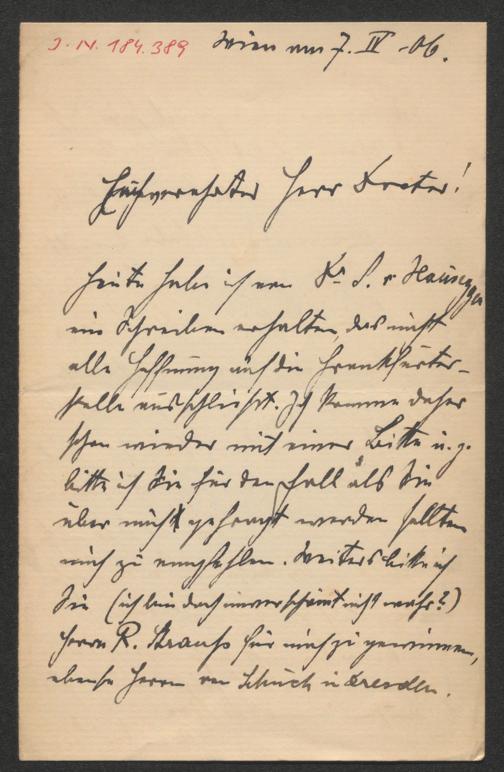 J. N. 184.389 Wien am 7. IV -06.
Hochverehrter Herr Doctor!
Heute habe ich von Dr S. v Hausegger
ein Schreiben erhalten, das nicht
alle Hoffnung auf die Frankfurter-
stelle ausschließt. Ich komme daher
schon wieder mit einer Bitte u. z.
bitte ich Sie für den Fall als Sie
über mich gefragt werden sollten
mich zu empfehlen. Weiters bitte ich
Sie (ich bin doch unverschämt nicht wahr?)
Herrn R. Strauss für mich zu gewinnen,
ebenso Herrn von Schuch in Dresden.